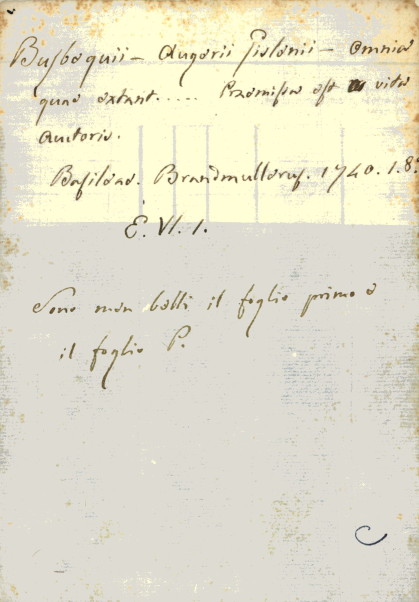 Busbequii - Augerii Gislenii - Omnia
quae extant..... Praemissa est vita
Auctoris.
Basileae. Brandmullerus. 1740. 1. 8.°
E. VI. 1.
Sono man belli il foglio primo e
il foglio P.
C